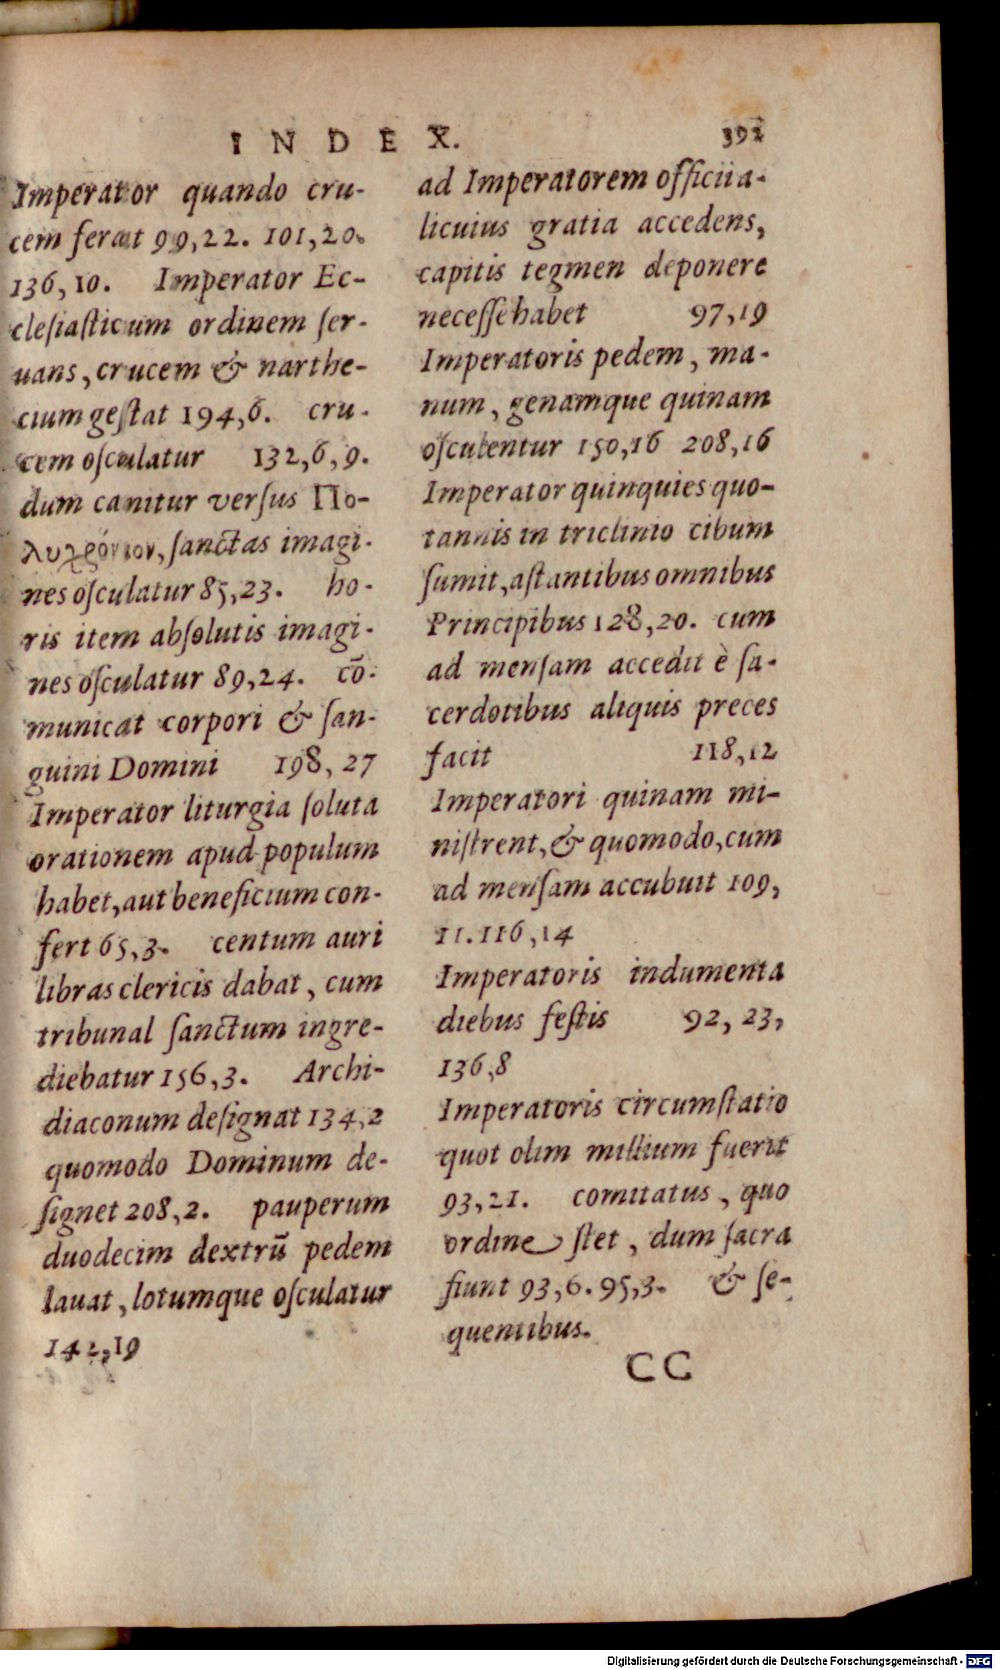 INDEX. 392
Imperator quando cru-
cem ferat 99,22. 101,20.
136,10. Imperator Ec-
cleſiaſticum ordinem ſer-
uans, crucem & narthe-
cium geſtat 194,6. cru-
cem oſculatur 132,6,9.
dum canitur verſus Πο-
λυχρόνιον, ſanctas imagi-
nes oſculatur 85,23. ho-
ris item abſolutis imagi-
nes oſculatur 89,24. cō-
municat corpori & ſan-
guini Domini 198, 27
Imperator liturgia ſoluta
orationem apud populum
habet, aut beneficium con-
fert 65,3. centum auri
libras clericis dabat, cum
tribunal ſanctum ingre-
diebatur 156,3. Archi-
diaconum deſignat 134,2
quomodo Dominum de-
ſignet 208,2. pauperum
duodecim dextrū pedem
lauat, lotumque oſculatur
142,19
ad Imperatorem officii a-
licuius gratia accedens,
capitis tegmen deponere
neceſſe habet 97,19
Imperatoris pedem, ma-
num, genamque quinam
oſculentur 150,16 208,16
Imperator quinquies quo-
tannis in triclinio cibum
ſumit, aſtantibus omnibus
Principibus 128,20. cum
ad menſam accedit è ſa-
cerdotibus aliquis preces
facit 118,12
Imperatori quinam mi-
niſtrent, & quomodo, cum
ad menſam accubuit 109,
11. 116,14
Imperatoris indumenta
diebus feſtis 92, 23,
136,8
Imperatoris circumſtatio
quot olim millium fuerit
93,21. comitatus, quo
ordine ſtet, dum ſacra
fiunt 93,6. 95,3. & ſe-
quentibus.
CC
Digitalisierung gefördert durch die Deutsche Forschungsgemeinschaft - DFG